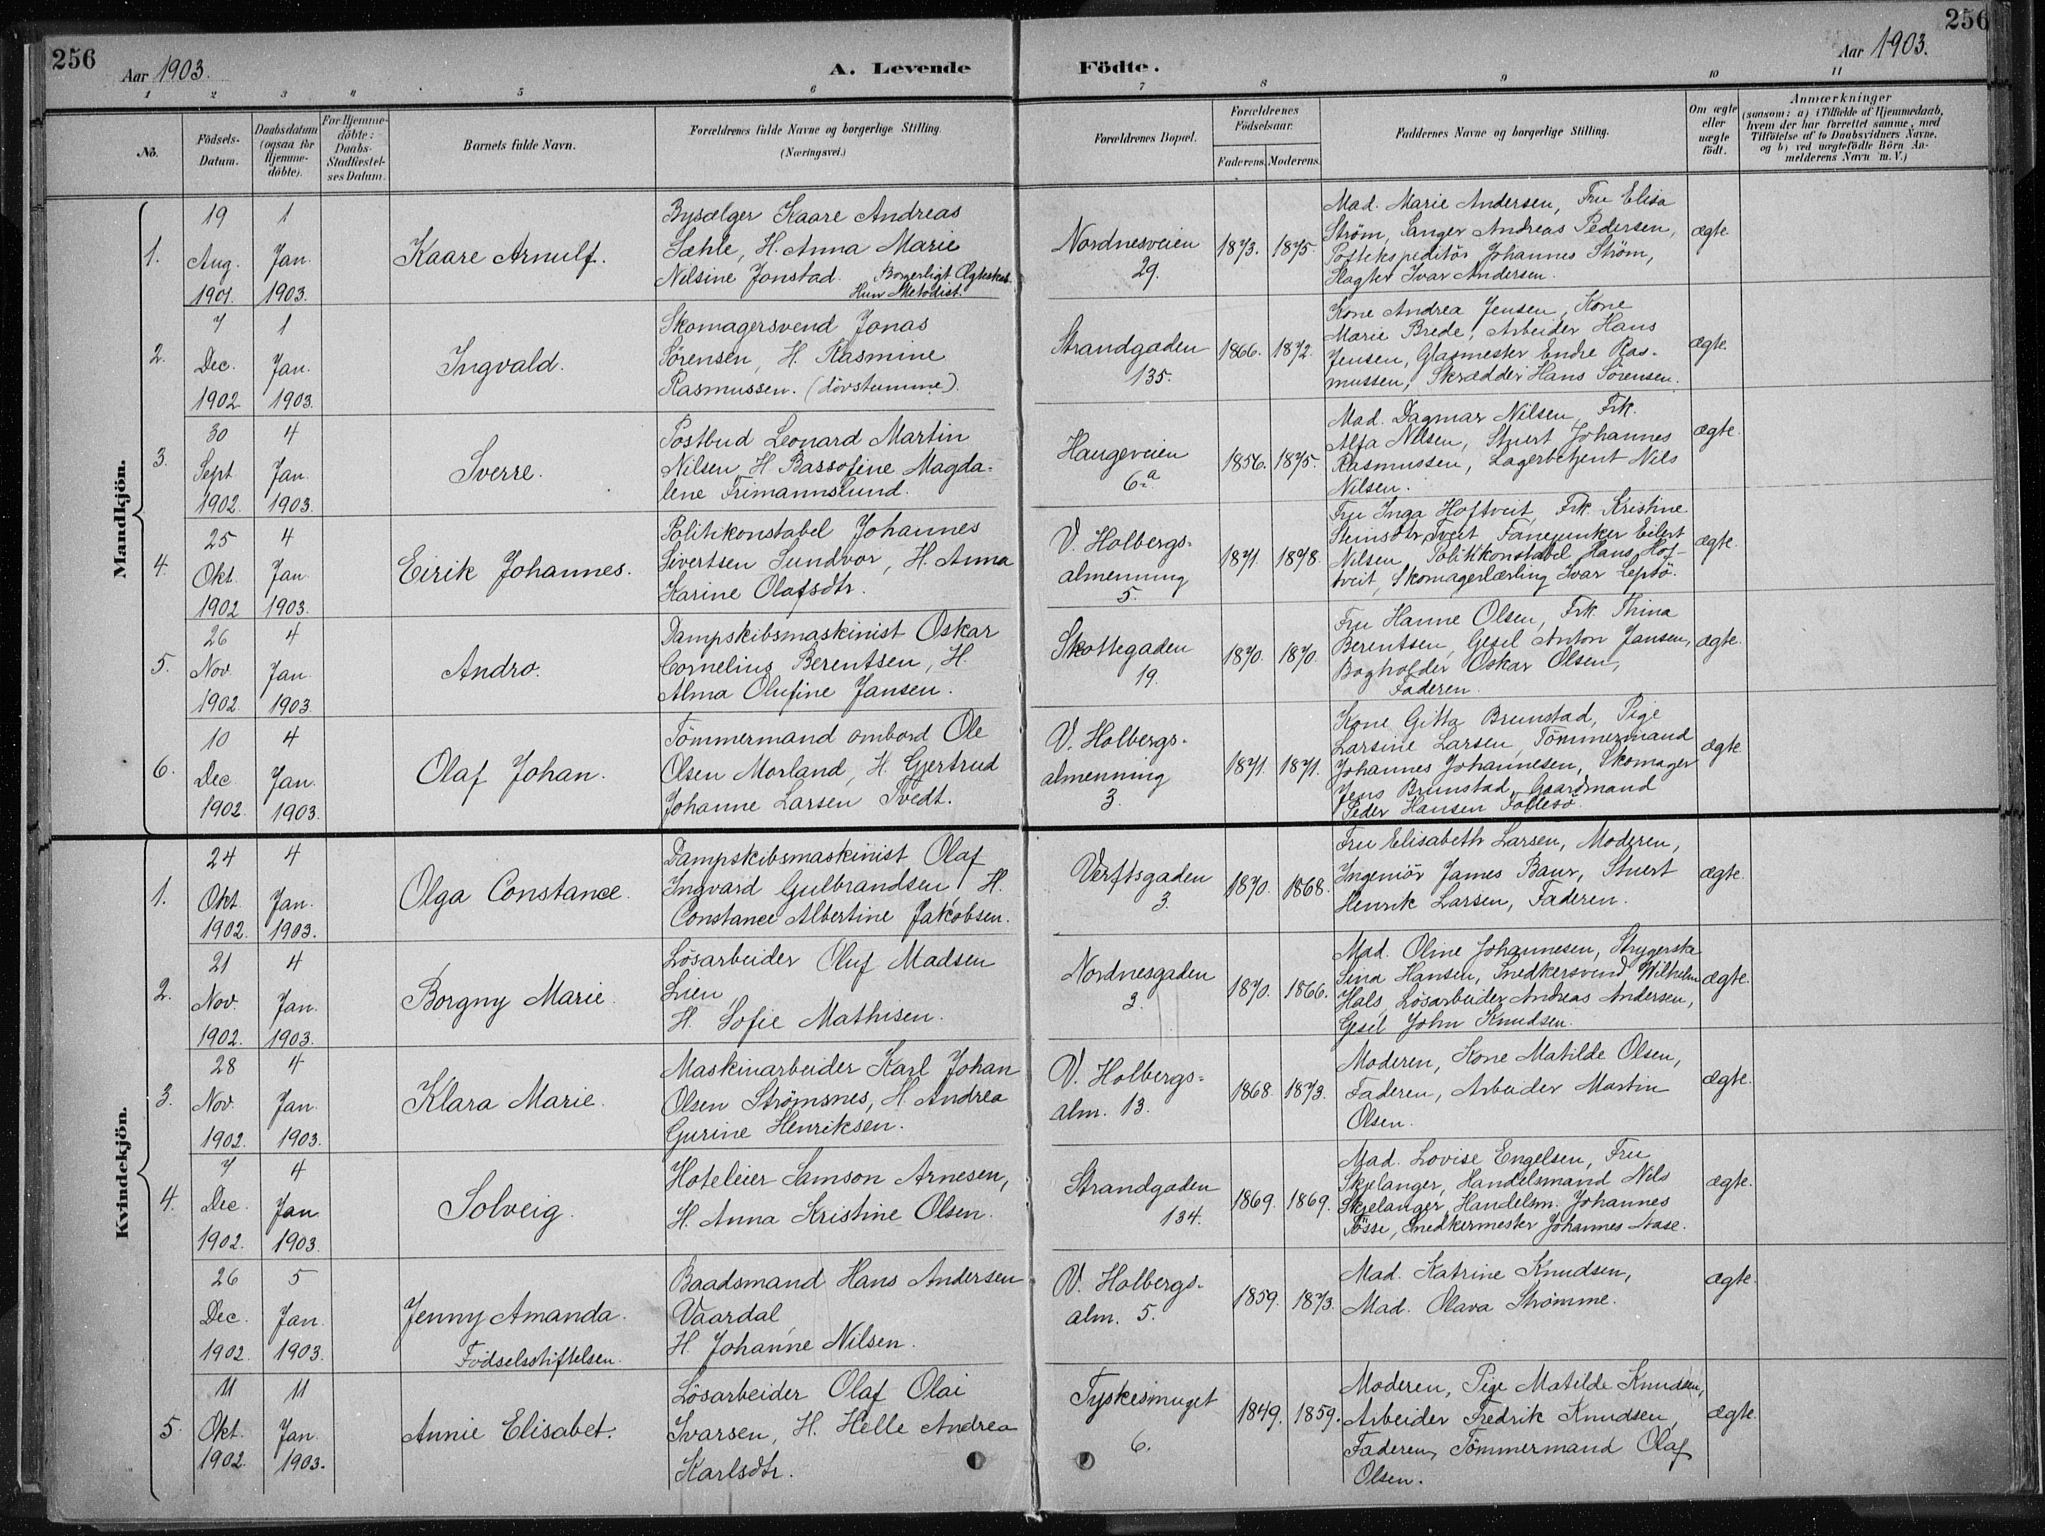 256
256
Aar 1903.
A. Levende
Födte.
Aar 1903.
1 2 3 4 5 6 7 8 9 10 11
No.
Födsels-
Datum.
Daabsdatum
(ogsaa for
Hjemme-
döbte).
For Hjemme-
döbte:
Daabs-
Stadfæstel-
ses Datum.
Barnets fulde Navn.
Forældrenes fulde Navne og borgerlige Stilling.
(Næringsvei.)
Forældrenes Bopæl.
Forældrenes
Födselsaar.
Faderens. Moderens.
Faddernes Navne og borgerlige Stilling.
Om ægte
eller
uægte
födt.
Anmærkninger
(saasom: a) i Tilfælde af Hjemmedaab,
hvem der har forrettet samme, med
Tilföielse af to Daabsvidners Navne,
og b) ved uægtefödte Börn An-
melderens Navn m. V.)
Mandkjön.
1.
19
Aug.
1901.
1
Jan.
1903.
Kaare Arnulf.
Bysælger Kaare Andreas
Sæhle, H. Anna Marie
Nilsine Jonstad. Borgerligt Ægteskab.
Hun Metodist.
Nordnesveien
29.
1873. 1875.
Mad. Marie Andersen, Fru Elisa
Strøm, Sanger Andreas Pedersen,
Postekspeditør Johannes Strøm,
Slagter Ivar Andersen.
ægte.
2.
7
Dec.
1902
1
Jan.
1903.
Ingvald.
Skomagersvend Jonas
Sörensen, H. Rasmine
Rasmussen. (dövstumme).
Strandgaden
135.
1866. 1872.
Kone Andrea Jensen, Kone
Marie Brede, Arbeider Hans
Jensen, Glasmester Endre Ras-
mussen, Skrædder Hans Sörensen.
ægte.
3.
30
Sept
1902.
4
Jan.
1903.
Sverre.
Postbud Leonard Martin
Nilsen, H. Bassofine Magda-
lene Frimannslund.
Haugeveien
6a.
1856. 1875.
Mad. Dagmar Nilsen, Frk.
Alfa Nilsen, Stuert Johannes
Rasmussen, Lagerbetjent Nils
Nilsen.
ægte.
4.
25
Okt.
1902
4
Jan.
1903.
Eirik Johannes.
Politikonstabel Johannes
Sivertsen Sundvor, H. Anna
Karine Olafsdtr.
V. Holbergs-
almenning
5.
1871. 1878.
Fru Inga Hoftveit, Frk. Kristine
Steinsdtr Tveit, Fanejunker Eilert
Nilsen, Politikonstabel Hans Hof-
tveit, Skomagerlærling Ivar Lepsö.
ægte.
5.
26
Nov.
1902.
4
Jan.
1903.
Andro.
Dampskibsmaskinist Oskar
Cornelius Berentsen, H.
Alma Olufine Jansen.
Skottegaden
19.
1870. 1870.
Fru Hanne Olsen, Frk. Thina
Berentsen, Gesel Anton Jansen,
Bogholder Oskar Olsen,
Faderen.
ægte.
6.
10
Dec.
1902.
4
Jan.
1903.
Olaf Johan.
Tömmermand ombord Ole
Olsen Morland, H. Gjertrud
Johanne Larsen Tvedt.
V. Holbergs-
almenning
3.
1871. 1871.
Kone Gitta Brunstad, Pige
Larsine Larsen, Tömmermand
Johannes Johannesen, Skomager
Jens Brunstad, Gaardmand
Peder Hansen Follesø.
ægte.
Kvindekjön.
1.
24
Okt.
1902.
4
Jan.
1903.
Olga Constance.
Dampskibsmaskinist Olaf
Ingvard Gulbrandsen, H.
Constance Albertine Jakobsen.
Verftsgaden
3.
1870. 1868.
Fru Elisabeth Larsen, Moderen,
Ingeniör James Baur, Stuert
Henrik Larsen, Faderen.
ægte.
2.
21
Nov.
1902.
4
Jan.
1903.
Borgny Marie.
Lösarbeider Oluf Madsen
Lien,
H. Sofie Mathisen.
Nordnesgaden
3.
1870. 1866.
Mad. Oline Johannesen, Strygerske
Sina Hansen, Snedkersvend Wilhelm
Hals, Lösarbeider Andreas Andersen,
Gesel John Knudsen.
ægte.
3.
28
Nov.
1902.
4
Jan.
1903.
Klara Marie.
Maskinarbeider Karl Johan
Olsen Strømsnes, H. Andrea
Gurine Henriksen.
V. Holbergs-
alm. 13.
1868. 1873.
Moderen, Kone Matilde Olsen,
Faderen, Arbeider Martin
Olsen.
ægte.
4.
7
Dec.
1902.
4
Jan
1903.
Solveig.
Hoteleier Samson Arnesen,
H. Anna Kristine Olsen.
Strandgaden
134.
1869. 1869.
Mad. Lovise Engelsen, Fru
Skjelanger, Handelsmand Nils
Skjelanger, Handelsm. Johannes
Fosse, Snedkermester Johannes Nase.
ægte.
26
Dec.
1902.
5
Jan.
1903.
Jenny Amanda.
Födselsstiftelsen.
Baadsmand Hans Andersen
Vaardal,
H. Johanne Nilsen.
V. Holbergs-
alm. 5.
1859. 1873.
Mad. Katrine Knudsen,
Mad. Olava Strømme.
ægte.
5.
11
Okt.
1902.
11
Jan.
1903.
Annie Elisabet.
Lösarbeider Olaf Olai
Ivarsen, H. Helle Andrea
Karlsdtr.
Tyskesmuget
6.
1849. 1859.
Moderen, Pige Matilde Knudsen,
Arbeider Fredrik Knudsen,
Faderen, Tömmermand Olaf
Olsen.
ægte.